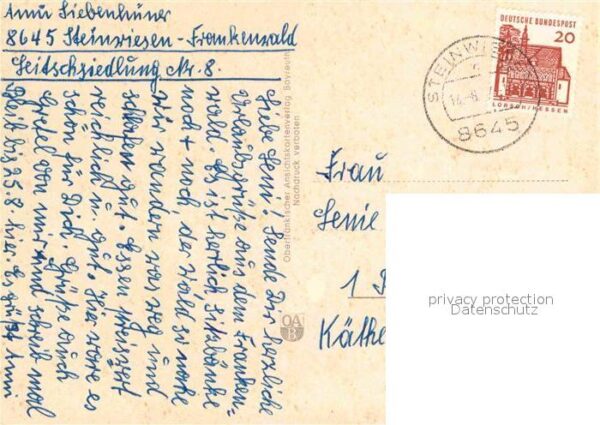 Anni Siebenhüner
8645 Steinwiesen-Frankenwald
Leitschsiedlung Nr. 8.
Liebe Jenni! Sende Dir herzliche
Urlaubsgrüße aus dem Franken-
wald. Es ist herrlich, Sitzbänke
noch + noch, der Wald so nahe
wir wandern was weg und
schlafen gut. Essen preiswert
reichlich u. gut. Hier wäre es
schön für Dich. Grüße auch
Gretel von mir und schreib mal
Bleib bis 25.8. hier. Es grüßt Anni
Oberfränkischer Ansichtskartenverlag Bayreuth
Nachdruck verboten
OA
B
DEUTSCHE BUNDESPOST
20
LORSCH/HESSEN
STEINWIESEN
8645
Frau
Jenie
1
Käthe
privacy protection
Datenschutz